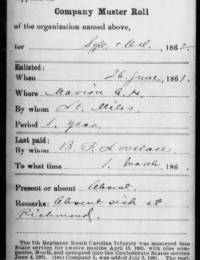 Company Muster Roll
of the organization named above,
for Sept & Oct., 1862.
Enlisted:
When 26 June, 1861.
Where Marion C. H.
By whom Lt. Miles
Period 1. year
Last paid:
By whom B. F. Lovelace
To what time 1. March, 186
Present or absent Absent
Remarks: Absent sick at
Richmond.
The 7th Regiment South Carolina Infantry was mustered into
State service for twelve months April 15, 1861, with nine com-
and entered into the Confederate States service
June 4, 1861.